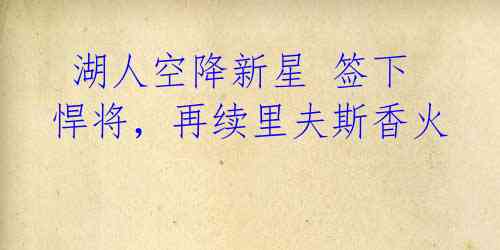 湖人空降新星 签下
悍将，再续里夫斯香火